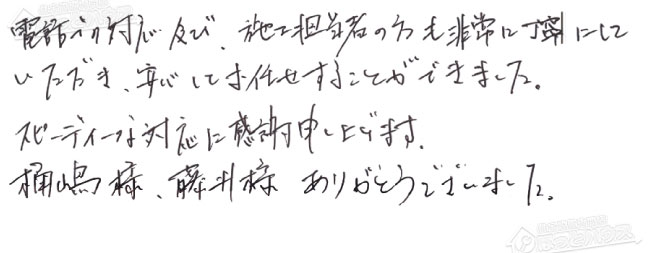 電話の対応及び、施工担当者の方も非常に丁寧にして
いただき、安心してお任せすることができました。
スピーディーな対応に感謝申し上げます。
桶嶋様、藤井様 ありがとうございました。